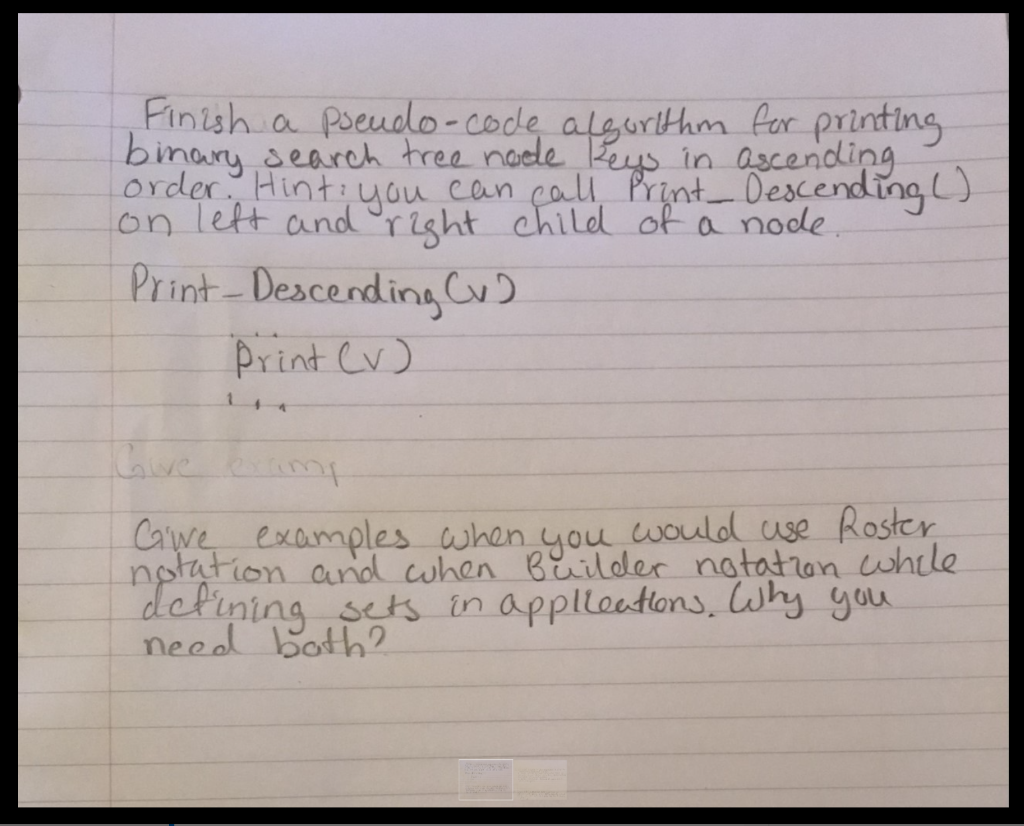 Finish a pseudo-code algorithm for printing
binary search tree node keys in ascending
order. Hint: you can call Print_Descending()
on left and right child of a node.
Print_Descending(v)
...
Print(v)
...
Give examp
Give examples when you would use Roster
notation and when Builder notation while
defining sets in applications. Why you
need both?